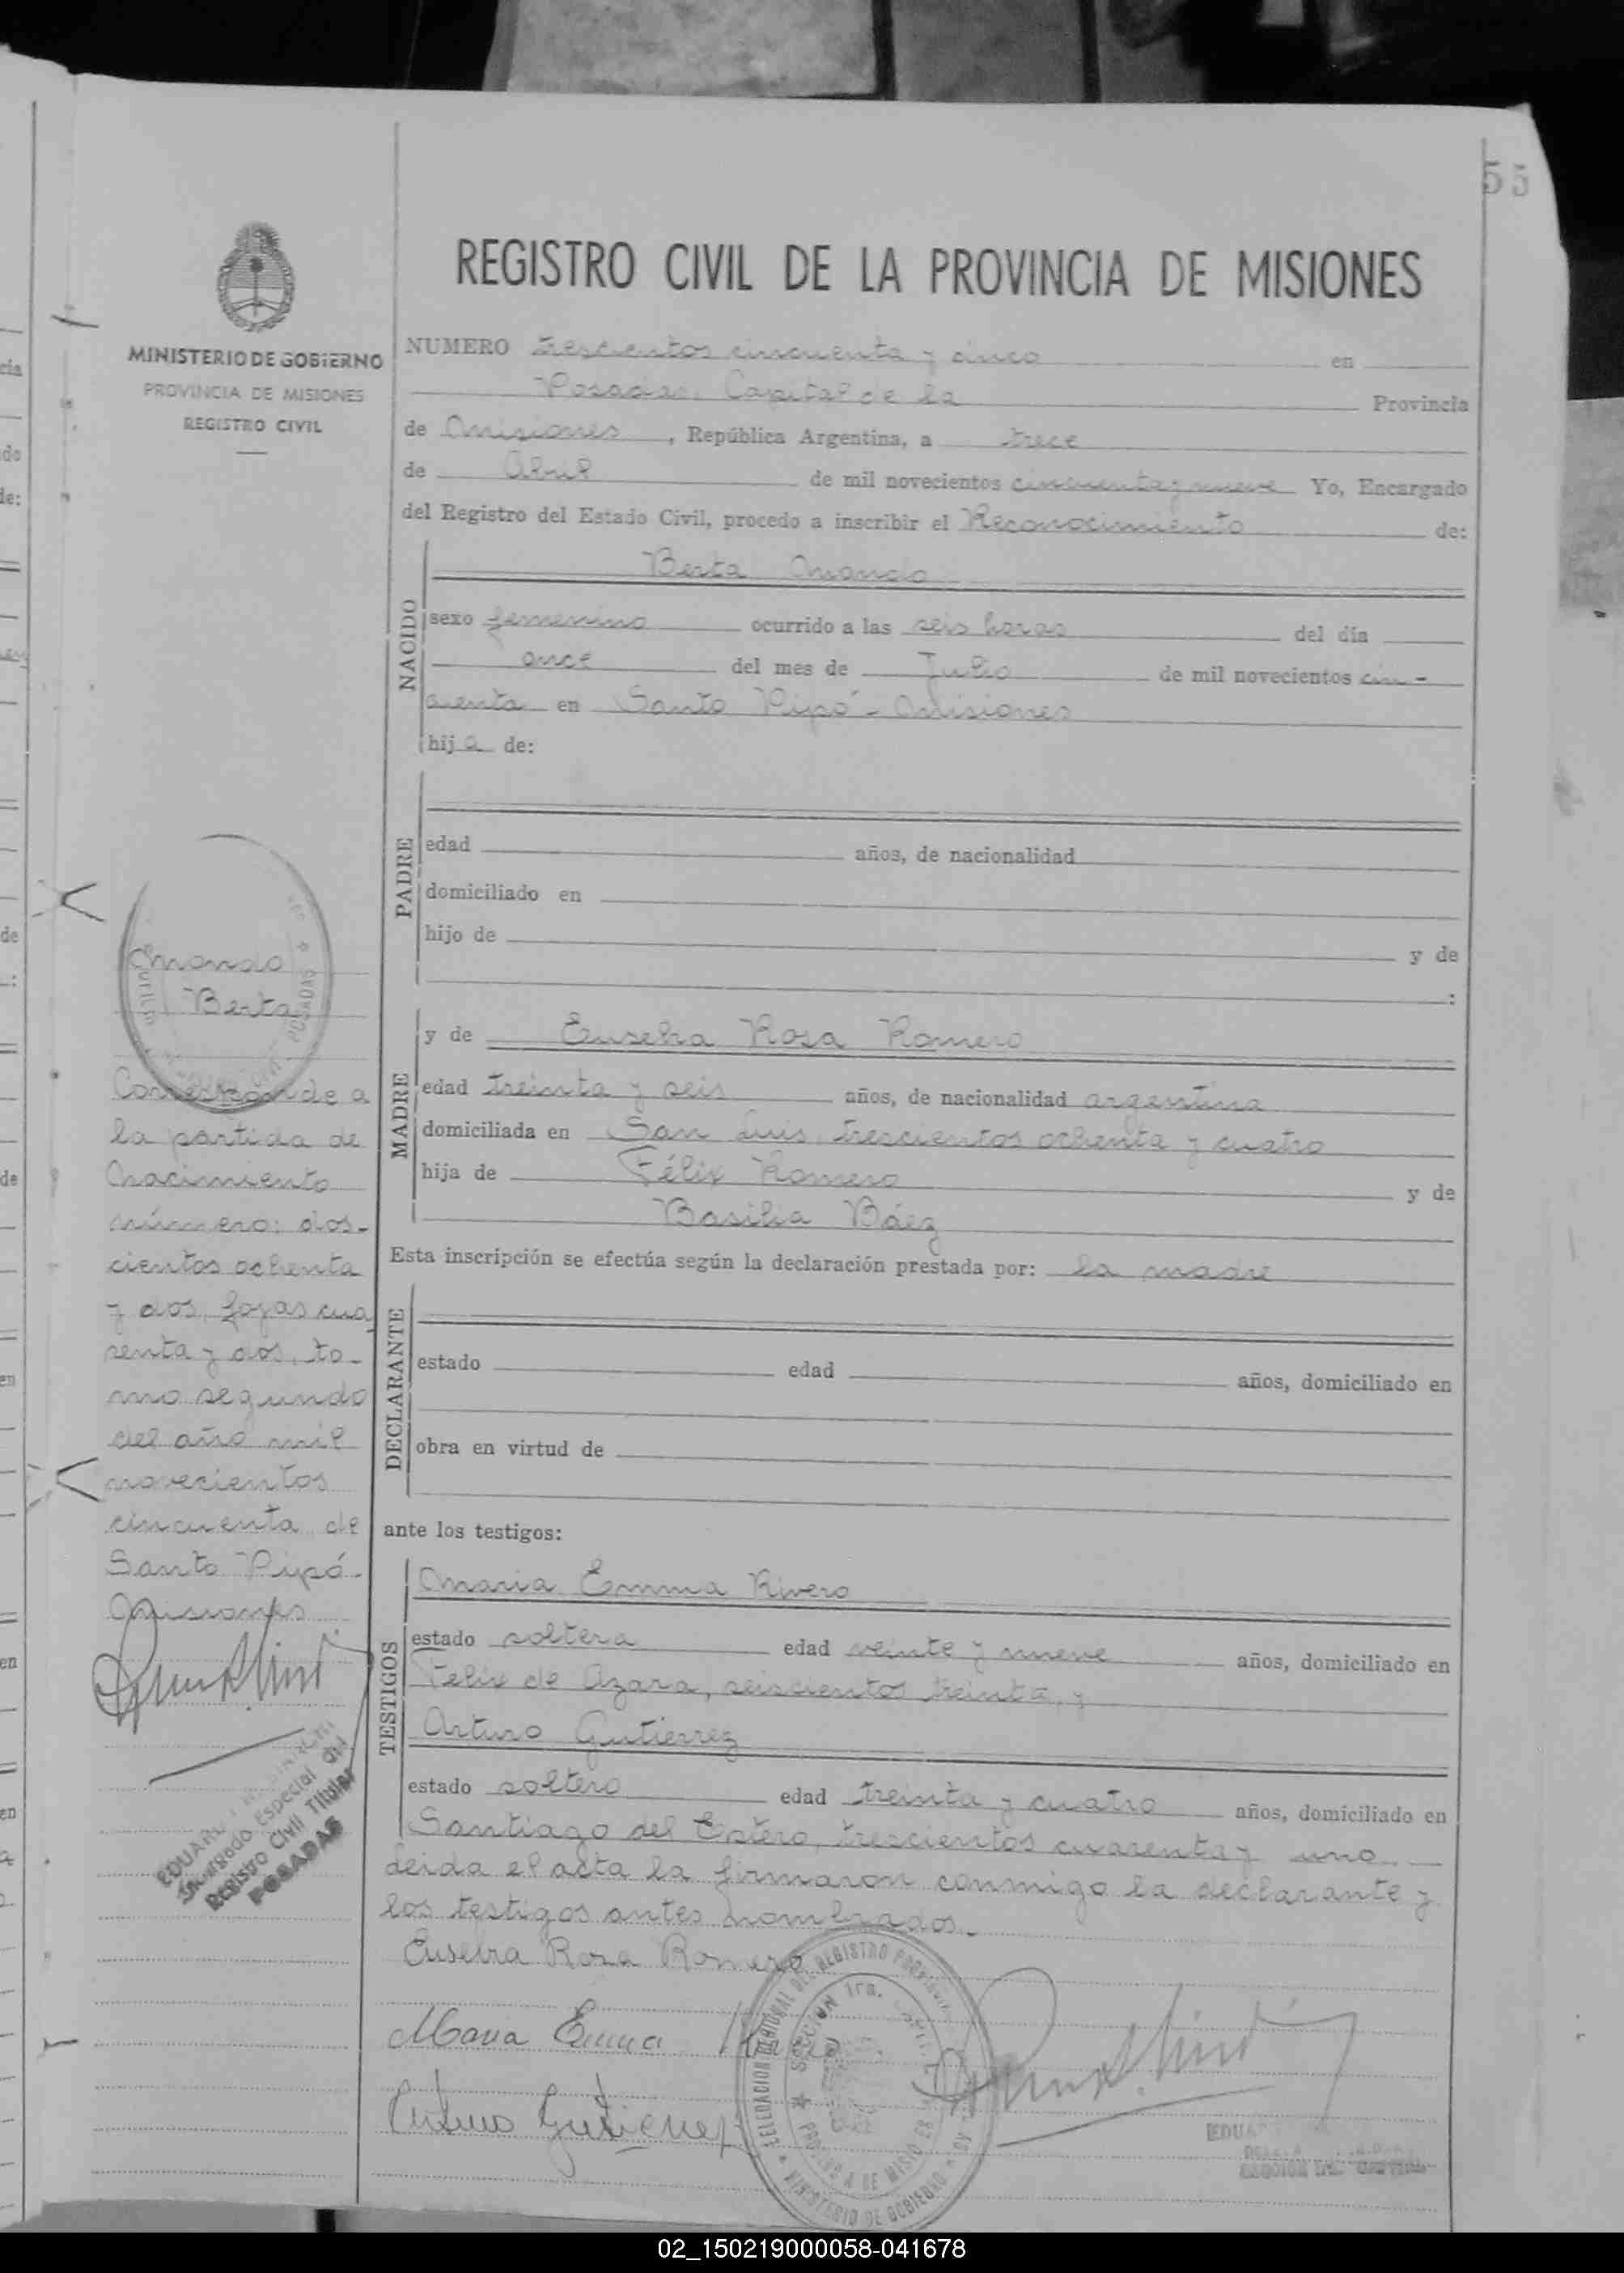 55
REGISTRO CIVIL DE LA PROVINCIA DE MISIONES
MINISTERIO DE GOBIERNO
PROVINCIA DE MISIONES
REGISTRO CIVIL
NUMERO trescientos cincuenta y cinco en
Posadas, Capital de la Provincia
de Misiones, República Argentina, a trece
de Abril de mil novecientos cincuenta y nueve Yo, Encargado
del Registro del Estado Civil, procedo a inscribir el Reconocimiento de:
NACIDO
Berta
sexo femenino ocurrido a las seis horas del día
once del mes de Julio de mil novecientos cin-
cuenta en Santo Pipó - Misiones
hija de:
PADRE
edad años, de nacionalidad
domiciliado en
hijo de y de
:
MADRE
y de Eusebia Rosa Romero
edad treinta y seis años, de nacionalidad argentina
domiciliada en San Luis, trescientos ochenta y cuatro
hija de Félix Romero y de
Basilia Báez
Esta inscripción se efectúa según la declaración prestada por: la madre
DECLARANTE
estado edad años, domiciliado en
obra en virtud de
ante los testigos:
TESTIGOS
Maria Emma Rivero
estado soltera edad veinte y nueve años, domiciliado en
Felix de Azara, seiscientos treinta, y
Arturo Gutierrez
estado soltero edad treinta y cuatro años, domiciliado en
Santiago del Estero, trescientos cuarenta y uno
Leida el acta la firmaron conmigo la declarante y
los testigos antes nombrados.-
Eusebia Rosa Romero
Maria Emma Rivero
Arturo Gutierrez
Berta
Corresponde a
la partida de
Nacimiento
número: dos-
cientos ochenta
y dos, fojas cua
renta y dos, to-
mo segundo
del año mil
novecientos
cincuenta de
Santo Pipó-
Misiones
Encargado Especial del
Registro Civil Titular
POSADAS
DELEGACION REGIONAL DEL REGISTRO PROVINCIAL
SECCION 1ra.
PROVINCIA DE MISIONES
MINISTERIO DE GOBIERNO
02_150219000058-041678